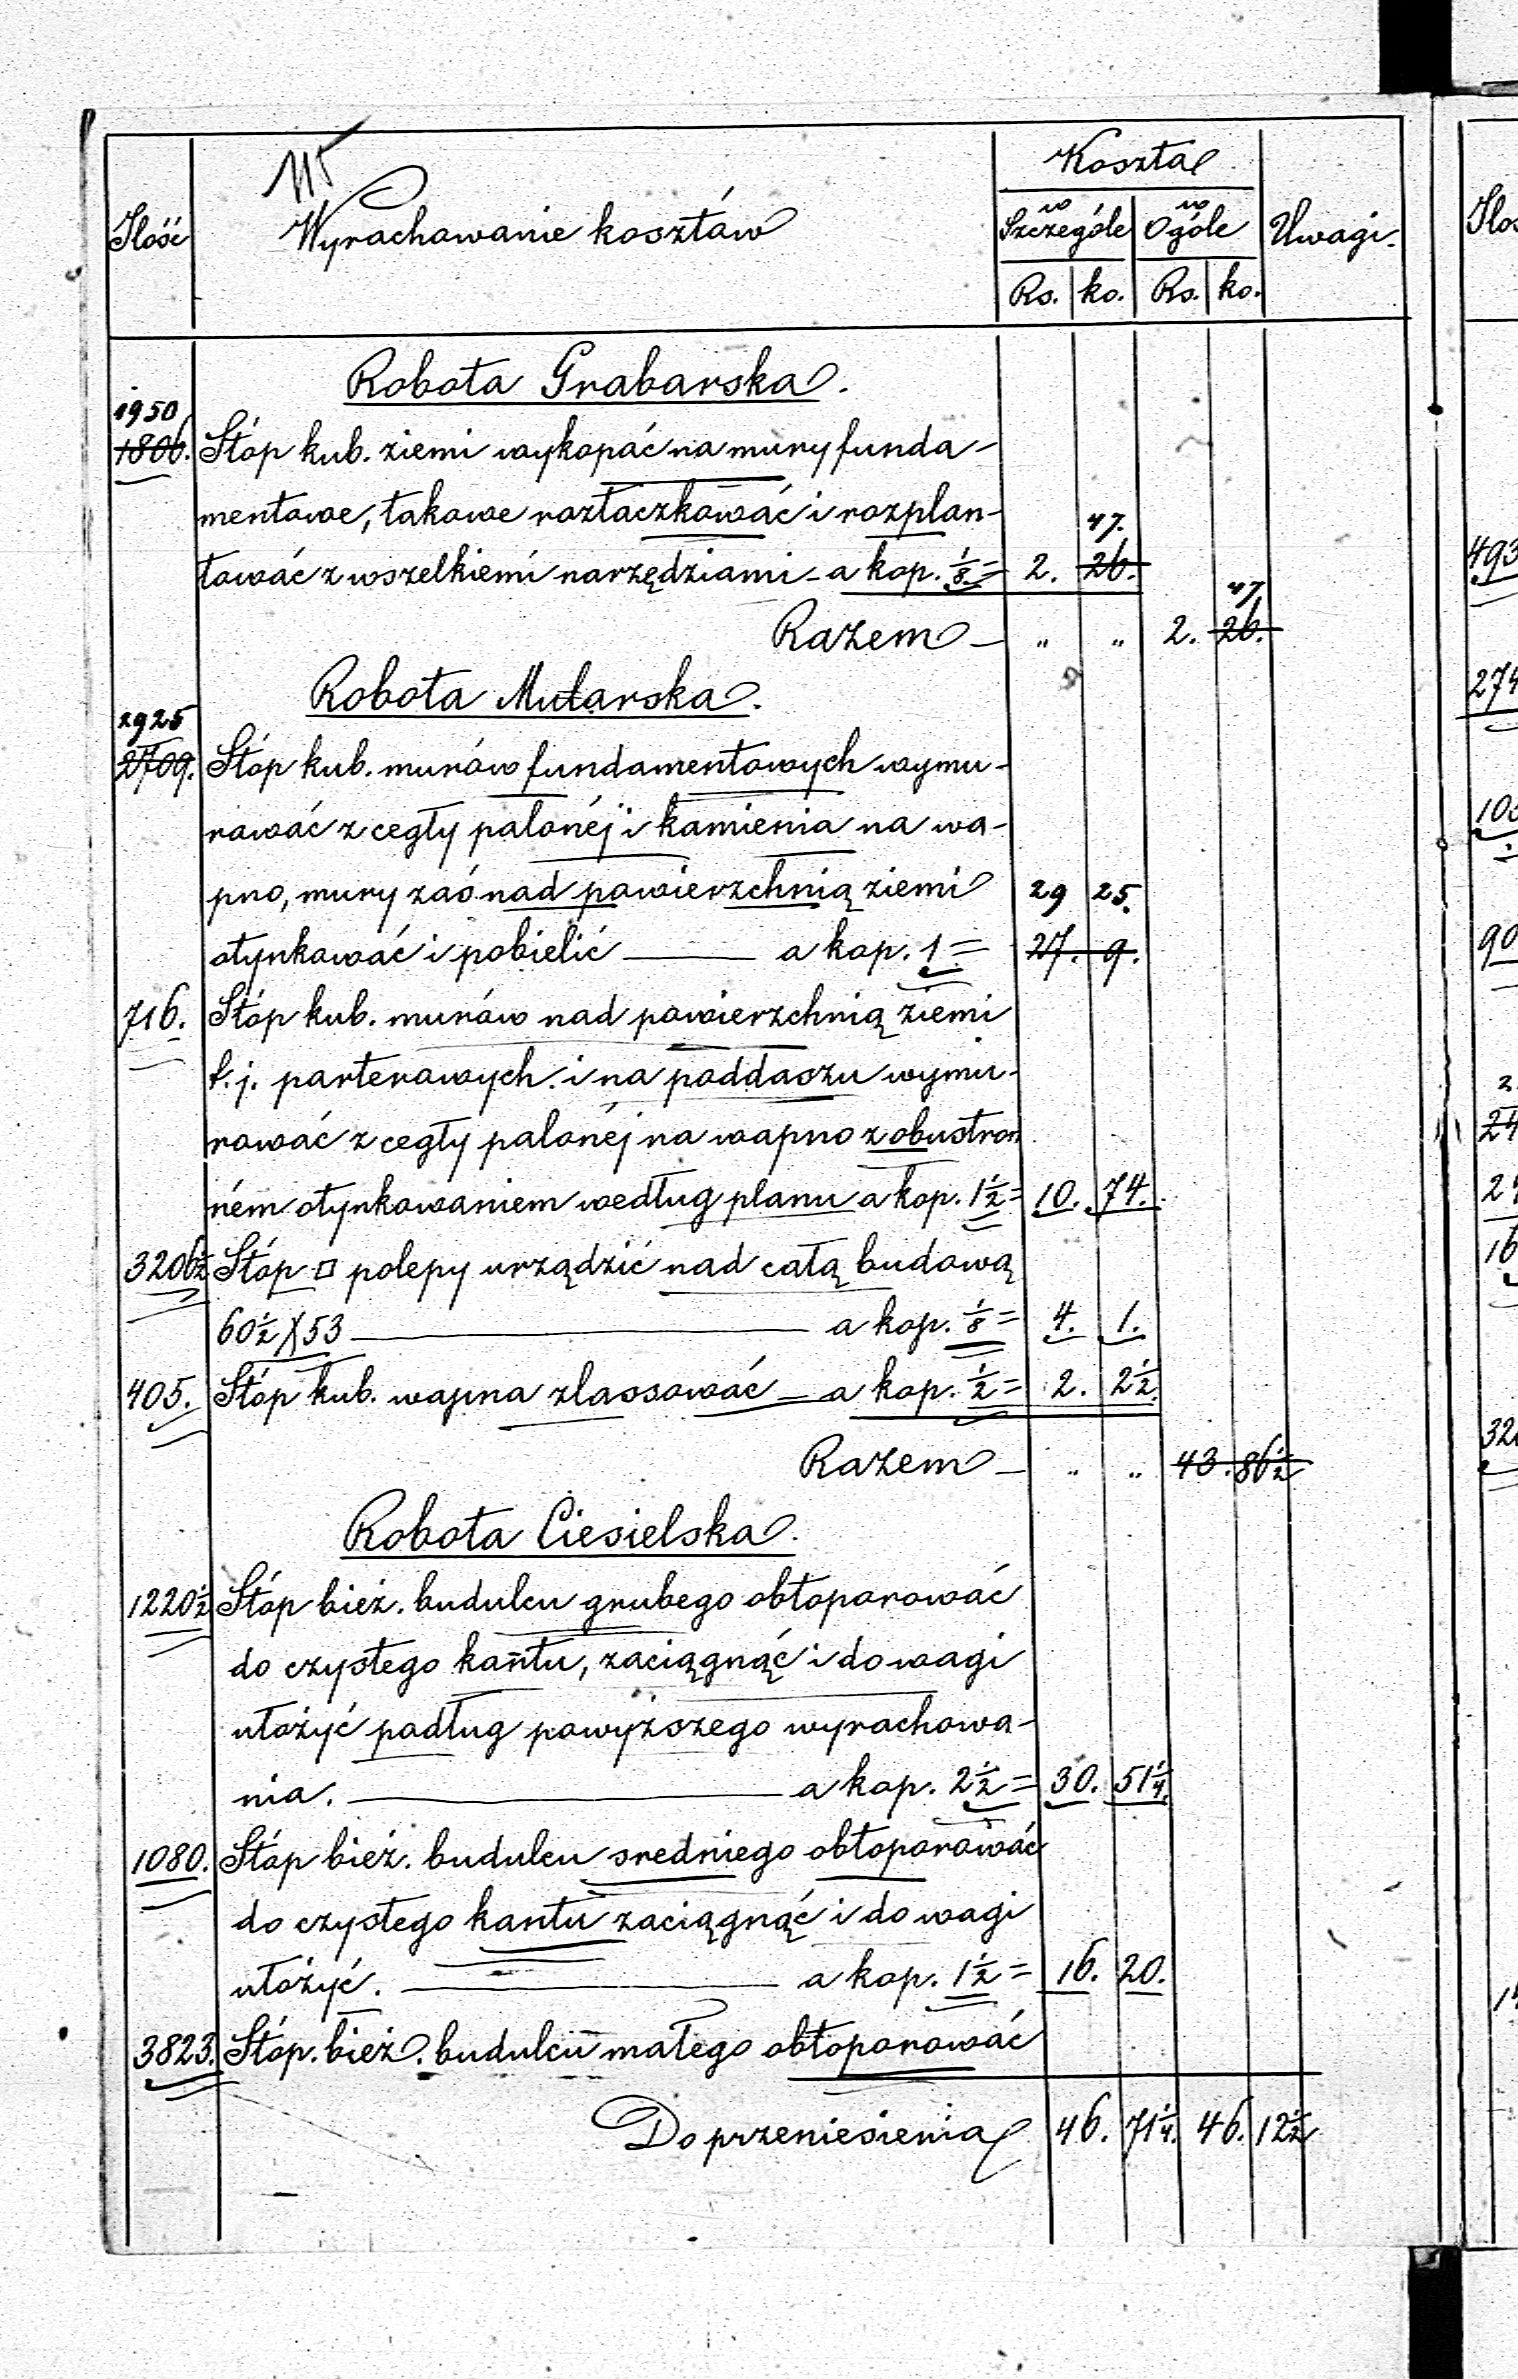 115
Koszta
Ilość Wyrachowanie kosztów w Szczególe w Ogóle Uwagi.
Rs. ko. Rs. ko.
Robota Grabarska.
1950
1806. Stóp kub. ziemi wykopać na mury funda-
mentowe, takowe roztaczkować i rozplan- 47.
tować z wszelkiemi narzędziami - a kop. 1/8 = 2. 26.
47
Razem - " " 2. 26.
Robota Mularska.
2925
2709. Stóp kub. murów fundamentowych wymu-
rować z cegły palonéj i kamienia na wa-
pno, mury zaś nad powierzchnią ziemi 29 25.
otynkować i pobielić — a kop. 1 = 27. 9.
716. Stóp kub. murów nad powierzchnią ziemi
t. j. parterowych i na poddaszu wymu-
rować z cegły palonéj na wapno z obustron
ném otynkowaniem według planu a kop. 1 1/2 = 10. 74.
3206 1/2 Stóp □ polepy urządzić nad całą budową
60 1/2 X 53 — a kop. 1/8 = 4. 1.
405. Stóp kub. wapna zlassować - a kop. 1/2 = 2. 2 1/2.
Razem - " " 43. 86 1/2
Robota Ciesielska.
1220 1/2 Stóp bież. budulcu grubego obtoporować
do czystego kantu, zaciągnąć i do wagi
ułożyć podług powyższego wyrachowa-
nia. — a kop. 2 1/2 = 30. 51 1/4.
1080. Stóp bież. budulcu sredniego obtoporować
do czystego kantu zaciągnąć i do wagi
ułożyć. — a kop. 1 1/2 = 16. 20.
3823. Stóp. bież. budulcu małego obtoporować
Do przeniesienia 46. 71 1/4. 46. 12 1/2